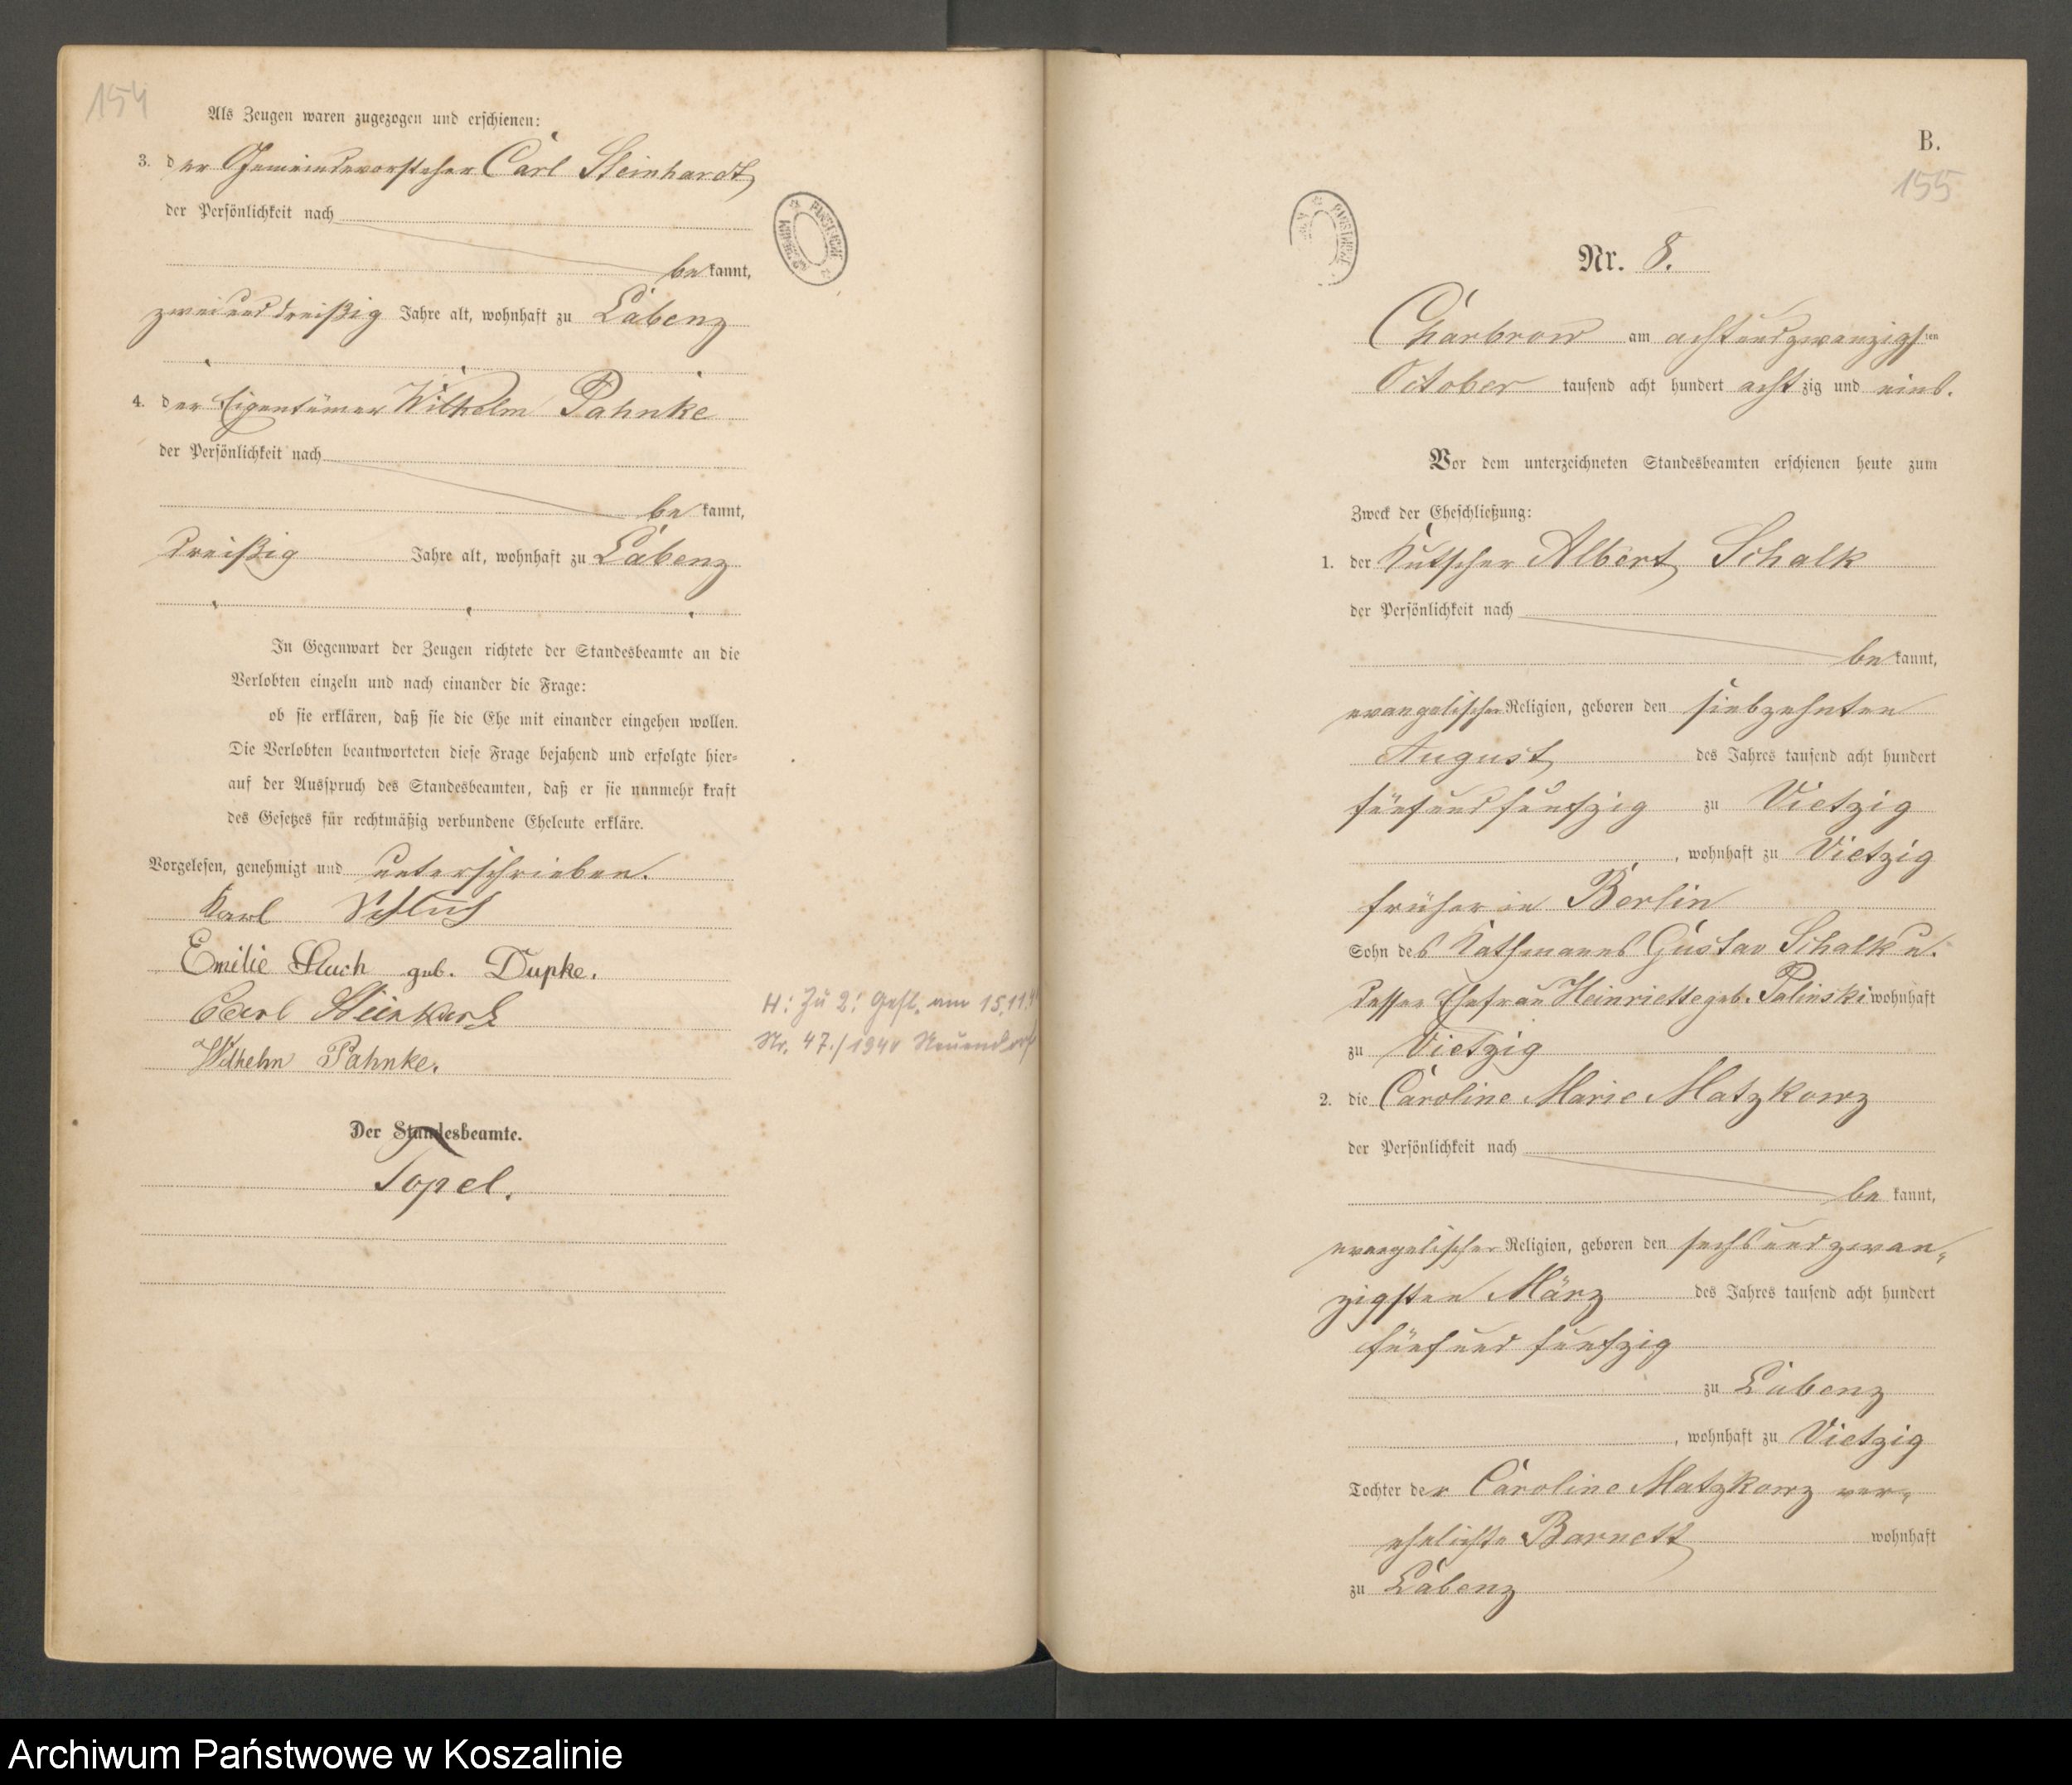 154
Als Zeugen waren zugezogen und erschienen:
3. der Gemeindevorsteher Carl Steinhardt
der Persönlichkeit nach
be kannt,
zweiunddreißig Jahre alt, wohnhaft zu Labenz
4. der Eigentümer Wilhelm Pahnke
der Persönlichkeit nach
be kannt,
dreißig Jahre alt, wohnhaft zu Labenz
In Gegenwart der Zeugen richtete der Standesbeamte an die
Verlobten einzeln und nach einander die Frage:
ob sie erklären, daß sie die Ehe mit einander eingehen wollen.
Die Verlobten beantworteten diese Frage bejahend und erfolgte hier-
auf der Ausspruch des Standesbeamten, daß er sie nunmehr kraft
des Gesetzes für rechtmäßig verbundene Eheleute erkläre.
Vorgelesen, genehmigt und unterschrieben.
Karl
Emilie geb. Dupke.
Carl Steinhardt
Wilhelm Pahnke.
H: Zu 2: Gest. am 15.11.
Nr. 47./1940 Neuendorf
Der Standesbeamte.
Topel.
B.
155
Nr. 8.
Charbrow am achtundzwanzigsten
October tausend acht hundert achtzig und eins.
Vor dem unterzeichneten Standesbeamten erschienen heute zum
Zweck der Eheschließung:
1. der Kutscher Albert Schalk
der Persönlichkeit nach
be kannt,
evangelischer Religion, geboren den siebzehnten
August des Jahres tausend acht hundert
fünfundfünfzig zu Vietzig
, wohnhaft zu Vietzig
früher in Berlin
Sohn des Kathmanns Gustav Schalk u.
dessen Ehefrau Henriette geb. Palinski wohnhaft
zu Vietzig
2. die Caroline Marie Matzkowz
der Persönlichkeit nach
be kannt,
evangelischer Religion, geboren den sechsundzwan-
zigsten März des Jahres tausend acht hundert
fünfund fünfzig
zu Labenz
, wohnhaft zu Vietzig
Tochter der Caroline Matzkowz ver-
ehelichte Barnett wohnhaft
zu Labenz
Archiwum Państwowe w Koszalinie